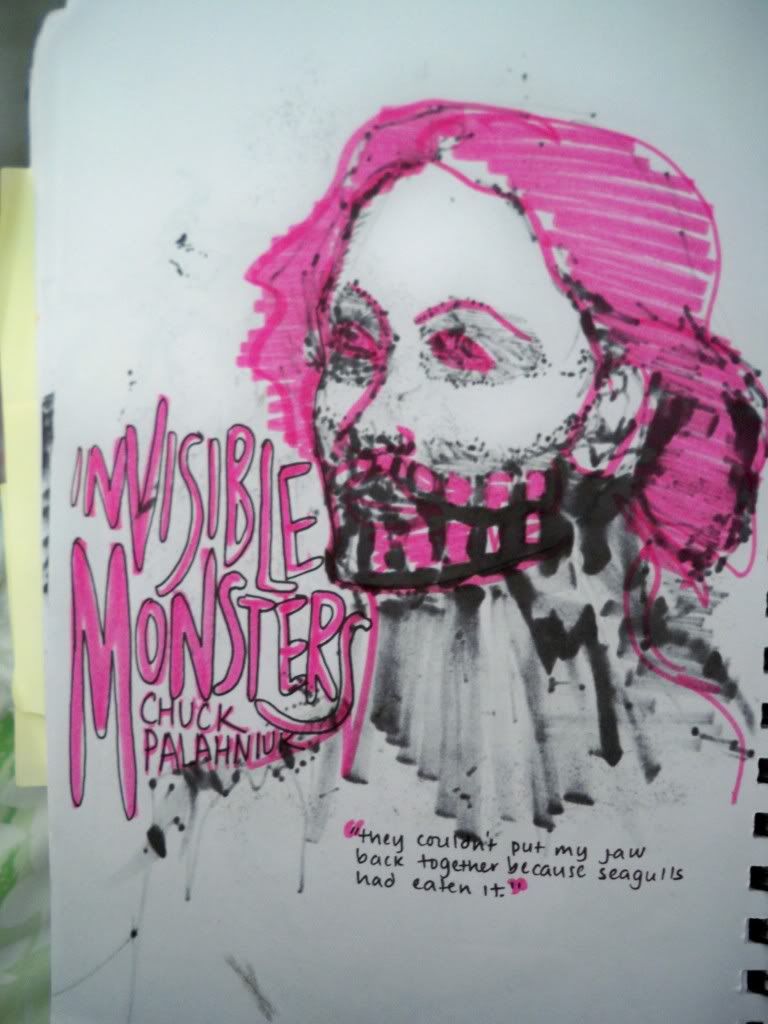 INVISIBLE
MONSTERS
CHUCK
PALAHNIUK
"they couldn't put my jaw
back together because seagulls
had eaten it."